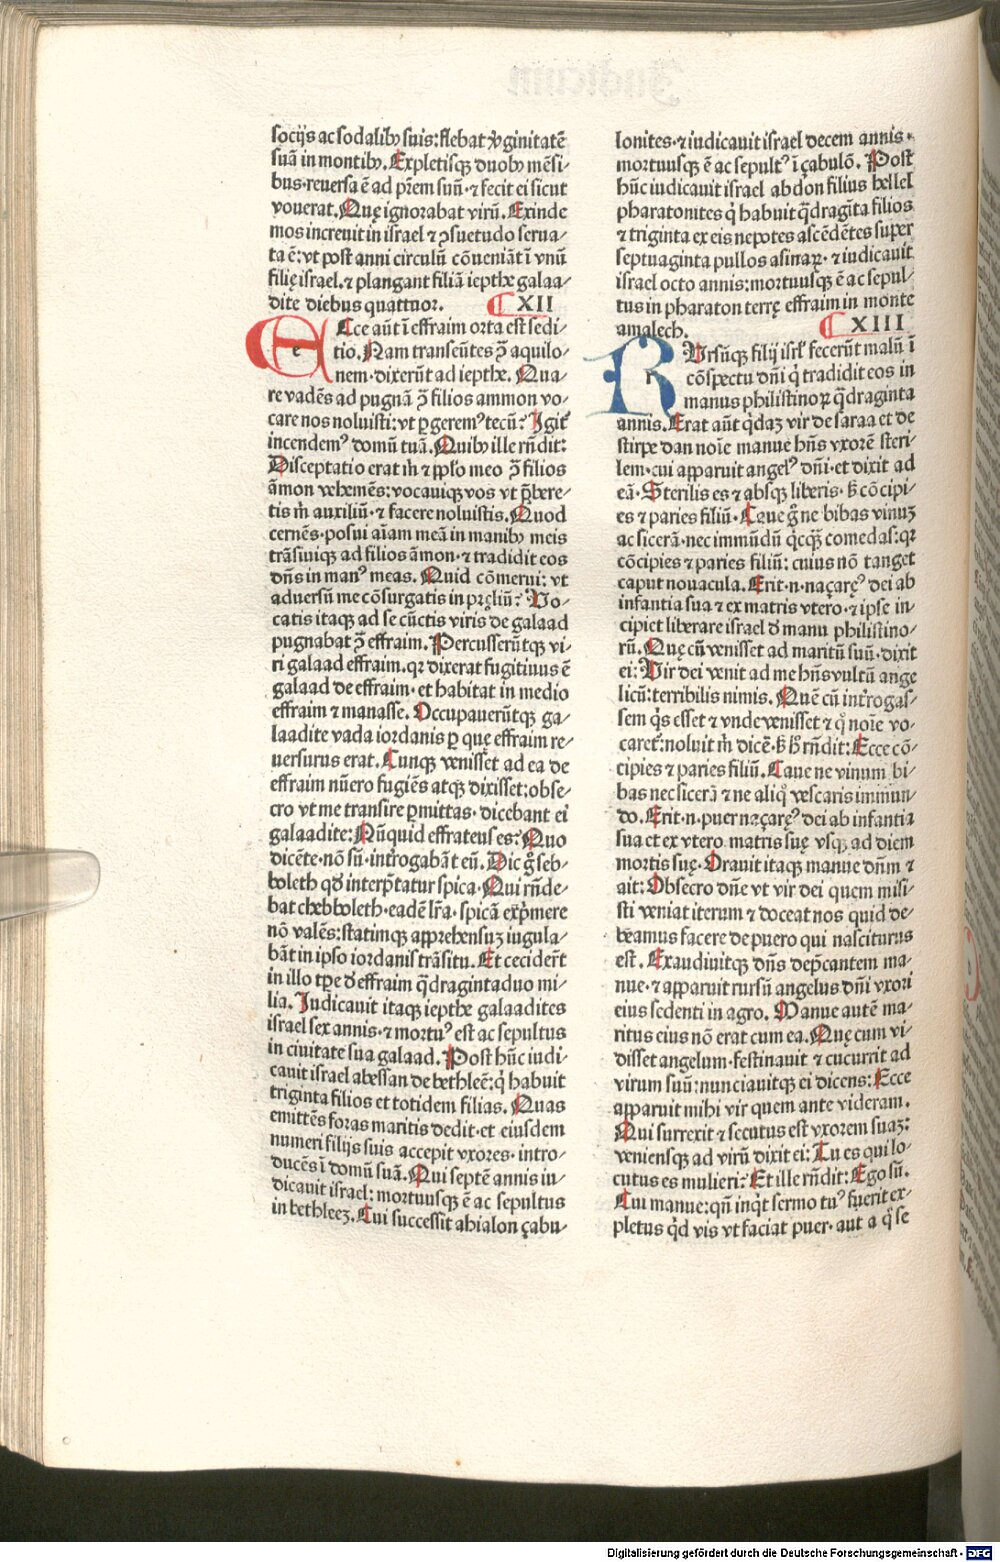 socijs ac sodalibꝫ suis: flebat v̾ginitatē
suā in montibꝫ. Expletisqꝫ duobꝫ mēsi
bus·reuersa ē ad p̄rem suū·⁊ fecit ei sicut
vouerat. Quę ignorabat virū. Exinde
mos increuit in israel ⁊ ꝯsuetudo serua⸗
ta ē: vt post anni circulū cōueniāt ī vnū
filię israel·⁊ plangant filiā iepthe galaa⸗
dite diebus quattuor. XII
Ecce aūt ī effraim orta est sedi⸗
tio. Nam transeūtes ꝯ̄ aquilo⸗
nem·dixerūt ad iepthe. Qua⸗
re vadēs ad pugnā ꝯ̄ filios ammon vo⸗
care nos noluisti: vt ꝑgeremꝰ tecū? Igit̄
incendemꝰ domū tuā. Quibꝫ ille rn̄dit:
Disceptatio erat m̄ ⁊ pplo meo ꝯ̄ filios
āmon vehemēs: vocauiqꝫ vos vt p̄bere⸗
tis m̄ auxiliū·⁊ facere noluistis. Quod
cernēs·posui aīam meā in manibꝫ meis
trāsiuiqꝫ ad filios āmon·⁊ tradidit eos
dn̄s in manꝰ meas. Quid cōmerui: vt
aduersū me cōsurgatis in pręliū? Vo⸗
catis itaqꝫ ad se cūctis viris de galaad
pugnabat ꝯ̄ effraim. Percusserūtqꝫ vi⸗
ri galaad effraim. qꝛ dixerat fugitiuus ē
galaad de effraim·et habitat in medio
effraim ⁊ manasse. Occupauerūtqꝫ ga⸗
laadite vada iordanis ꝑ que effraim re⸗
uersurus erat. Cunqꝫ venisset ad ea de
effraim nūero fugiēs atqꝫ dixisset: obse⸗
cro vt me transire ꝑmittas·dicebant ei
galaadite: Nūquid effrateus es? Quo
dicēte·nō sū·int̄rogabāt eū. Dic g̊ seb⸗
boleth qđ interp̄tatur spica. Qui rn̄de⸗
bat chebboleth·eadē lr̄a·spicā exp̄mere
nō valēs: statimqꝫ apprehensuꝫ iugula⸗
bāt in ipso iordanis trāsitu. Et cecidert̄
in illo tꝑe đ effraim q̄dragintaduo mi⸗
lia. Judicauit itaqꝫ iepthe galaadites
israel sex annis·⁊ mortuꝰ est ac sepultus
in ciuitate sua galaad. Post hūc iudi⸗
cauit israel abessan de bethleē: q̇ habuit
triginta filios et totidem filias. Quas
emittēs foras maritis dedit·et eiusdem
numeri filijs suis accepit vxores·intro⸗
ducēs ī domū suā. Qui septē annis iu⸗
dicauit israel: mortuusqꝫ ē ac sepultus
in bethleeꝫ. Cui successit ahialon çabu⸗
lonites·⁊ iudicauit israel decem annis·
mortuusqꝫ ē ac sepultꝰ ī çabulō. Post
hūc iudicauit israel abdon filius hellel
pharatonites q̇ habuit q̄dragīta filios
⁊ triginta ex eis nepotes ascēdētes super
septuaginta pullos asinaꝝ·⁊ iudicauit
israel octo annis: mortuusqꝫ ē ac sepul⸗
tus in pharaton terrę effraim in monte
amalech. XIII
Rursūqꝫ filij isrl̄ fecerūt malū ī
cōspectu dn̄i q̇ tradidit eos in
manus philistinoꝝ q̄draginta
annis. Erat aūt q̇daꝫ vir de saraa et de
stirpe dan noīe manue hn̄s vxorē steri⸗
lem·cui apparuit angelꝰ dn̄i·et dixit ad
eā. Sterilis es ⁊ absqꝫ liberis·sꝫ cōcipi⸗
es ⁊ paries filiū. Caue g̊ ne bibas vinuꝫ
ac sicerā·nec immūdū q̇cq̄ꝫ comedas: qꝛ
cōcipies ⁊ paries filiū: cuius nō tanget
caput nouacula. Erit·n·naçaręꝰ dei ab
infantia sua ⁊ ex matris vtero·⁊ ipse in
cipiet liberare israel đ manu philistino⸗
rū. Quę cū venisset ad maritū suū·dixit
ei: Vir dei venit ad me hn̄s vultū ange
licū: terribilis nimis. Quē cū int̄rogas⸗
sem q̇s esset ⁊ vnde venisset ⁊ q̊ noīe vo⸗
caret̄: noluit m̄ dicē·sꝫ h̊ rn̄dit: Ecce cō⸗
cipies ⁊ paries filiū. Caue ne vinum bi⸗
bas nec sicerā ⁊ ne aliq̊ vescaris immun⸗
do. Erit·n·puer naçaręꝰ dei ab infantia
sua et ex vtero matris suę vsqꝫ ad diem
mortis suę. Orauit itaqꝫ manue dn̄m ⁊
ait: Obsecro dn̄e vt vir dei quem misi⸗
sti veniat iterum ⁊ doceat nos quid de⸗
beamus facere de puero qui nasciturus
est. Exaudiuitqꝫ dn̄s dep̄cantem ma⸗
nue·⁊ apparuit rursū angelus dn̄i vxori
eius sedenti in agro. Manue autē ma⸗
ritus eius nō erat cum ea. Quę cum vi⸗
disset angelum·festinauit ⁊ cucurrit ad
virum suū: nunciauitqꝫ ei dicens: Ecce
apparuit mihi vir quem ante videram.
Qui surrexit ⁊ secutus est vxorem suaꝫ:
veniensqꝫ ad virū dixit ei: Tu es qui lo⸗
cutus es mulieri? Et ille rn̄dit: Ego sū.
Cui manue: qn̄ inq̇t sermo tuꝰ fuerit ex⸗
pletus q̇d vis vt faciat puer·aut a q̊ se
Digitalisierung gefördert durch die Deutsche Forschungsgemeinschaft - DFG